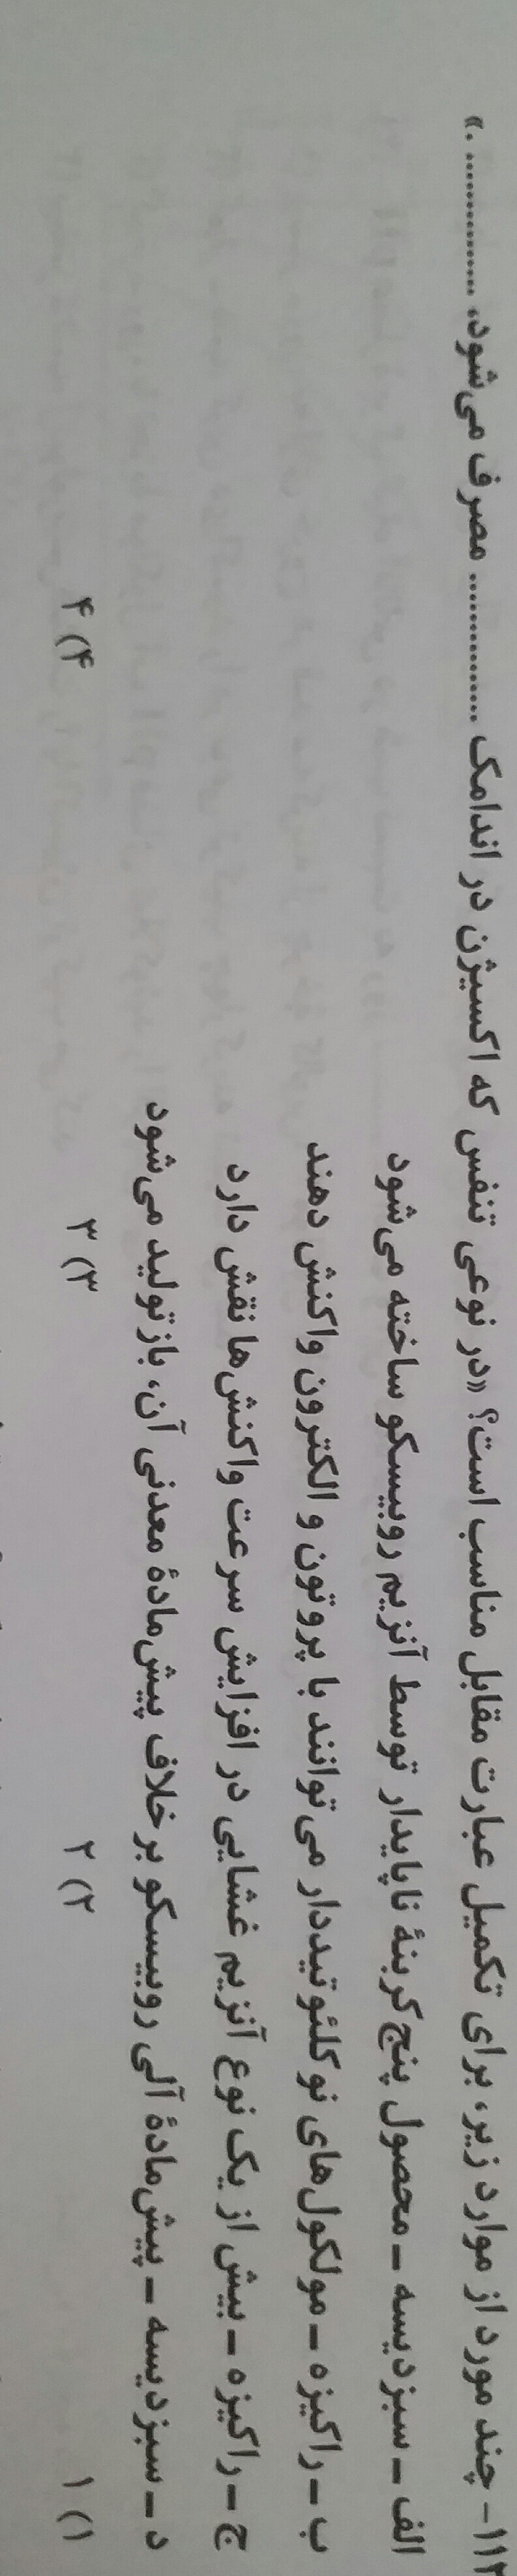 ۱۱۲- چند مورد از موارد زیر، برای تکمیل عبارت مقابل مناسب است؟ «در نوعی تنفس که اکسیژن در اندامک ............... مصرف می‌شود، ............... .»
الف ـ سبزدیسه ـ محصول پنج‌کربنهٔ ناپایدار توسط آنزیم روبیسکو ساخته می‌شود
ب ـ راکیزه ـ مولکول‌های نوکلئوتیددار می‌توانند با پروتون و الکترون واکنش دهند
ج ـ راکیزه ـ بیش از یک نوع آنزیم غشایی در افزایش سرعت واکنش‌ها نقش دارد
د ـ سبزدیسه ـ پیش‌مادهٔ آلی روبیسکو برخلاف پیش‌مادهٔ معدنی آن، بازتولید می‌شود
۱) ۱ ۲) ۲ ۳) ۳ ۴) ۴